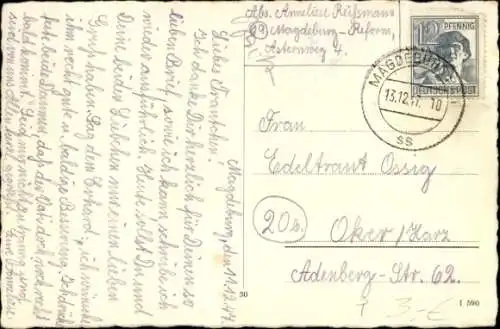 Abs. Anneliese Rüßmann
Magdeburg-Reform,
Asternweg 4.
12 PFENNIG
DEUTSCHE POST
MAGDEBURG
13.12.47. 10
SS
Frau
Edeltraut Ossig
20b.
Oker/Harz
Adenberg-Str. 62.
30
I 590
3,-€
Magdeburg, den 11.12.47.
Liebes Trautchen!
Ich danke Dir herzlich für Deinen so
lieben Brief, sowie ich kann schreibe ich
wieder ausführlich. Heute sollst Du und
Deine beiden Bübchen nur einen lieben
Gruß haben. Sag dem Erhard, ich wünsche
ihm recht gute u. baldige Besserung. Ich drücke
Euch beide Daumen, daß der Vati doch noch recht
bald kommt.